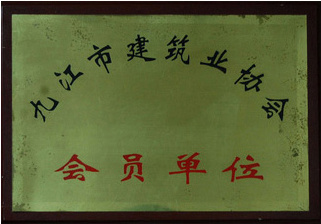 九江市建筑业协会
会员单位